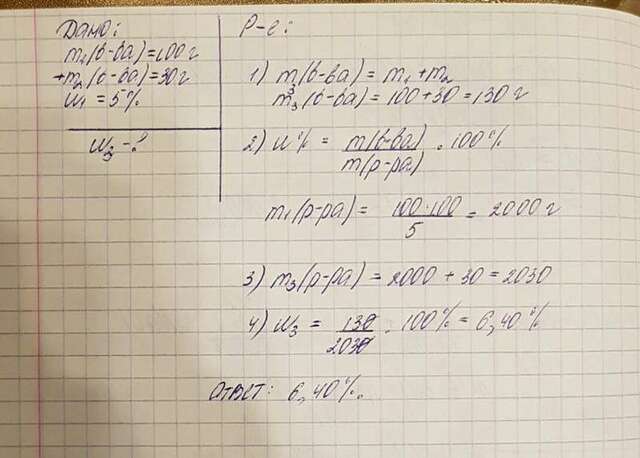 Дано:
m1(в-ва)=100г
+m2(в-ва)=30г
W1 = 5%
W3 - ?
Р-е:
1) m3(в-ва) = m1+m2
m3(в-ва) = 100+30=130 г
2) W% = m(в-ва)/m(р-ра) · 100%
m1(р-ра) = 100·100/5 = 2000 г
3) m3(р-ра) = 2000 + 30 = 2030
4) W3 = 130/2030 · 100% = 6,40%
Ответ: 6,40%.